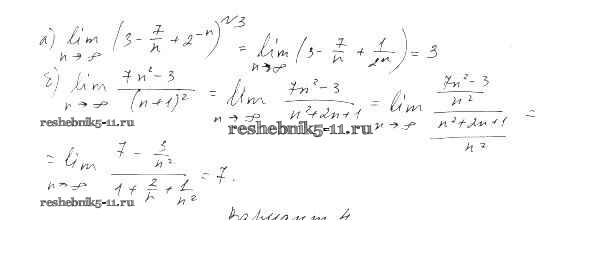 а) lim n→∞ (3 - 7/n + 2^-n) = lim n→∞ (3 - 7/n + 1/2^n) = 3
б) lim n→∞ (7n² - 3)/(n+1)² = lim n→∞ (7n² - 3)/(n² + 2n + 1) = lim n→∞ ((7n² - 3)/n²)/((n² + 2n + 1)/n²) =
reshebnik5-11.ru reshebnik5-11.ru
= lim n→∞ (7 - 3/n²)/(1 + 2/n + 1/n²) = 7.
reshebnik5-11.ru
Вариант 4